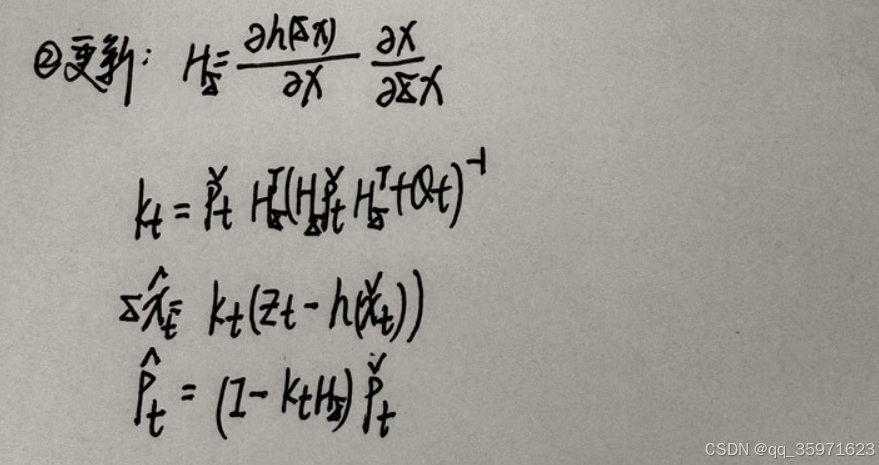 ②更新: H_δ = ∂h(δx)/∂x ∂x/∂δx
k_t = P̌_t H_δ^T (H_δ P̌_t H_δ^T + Q_t)^-1
δx̂_t = k_t(z_t - h(x̌_t))
P̂_t = (I - k_t H_δ) P̌_t
CSDN @qq_35971623